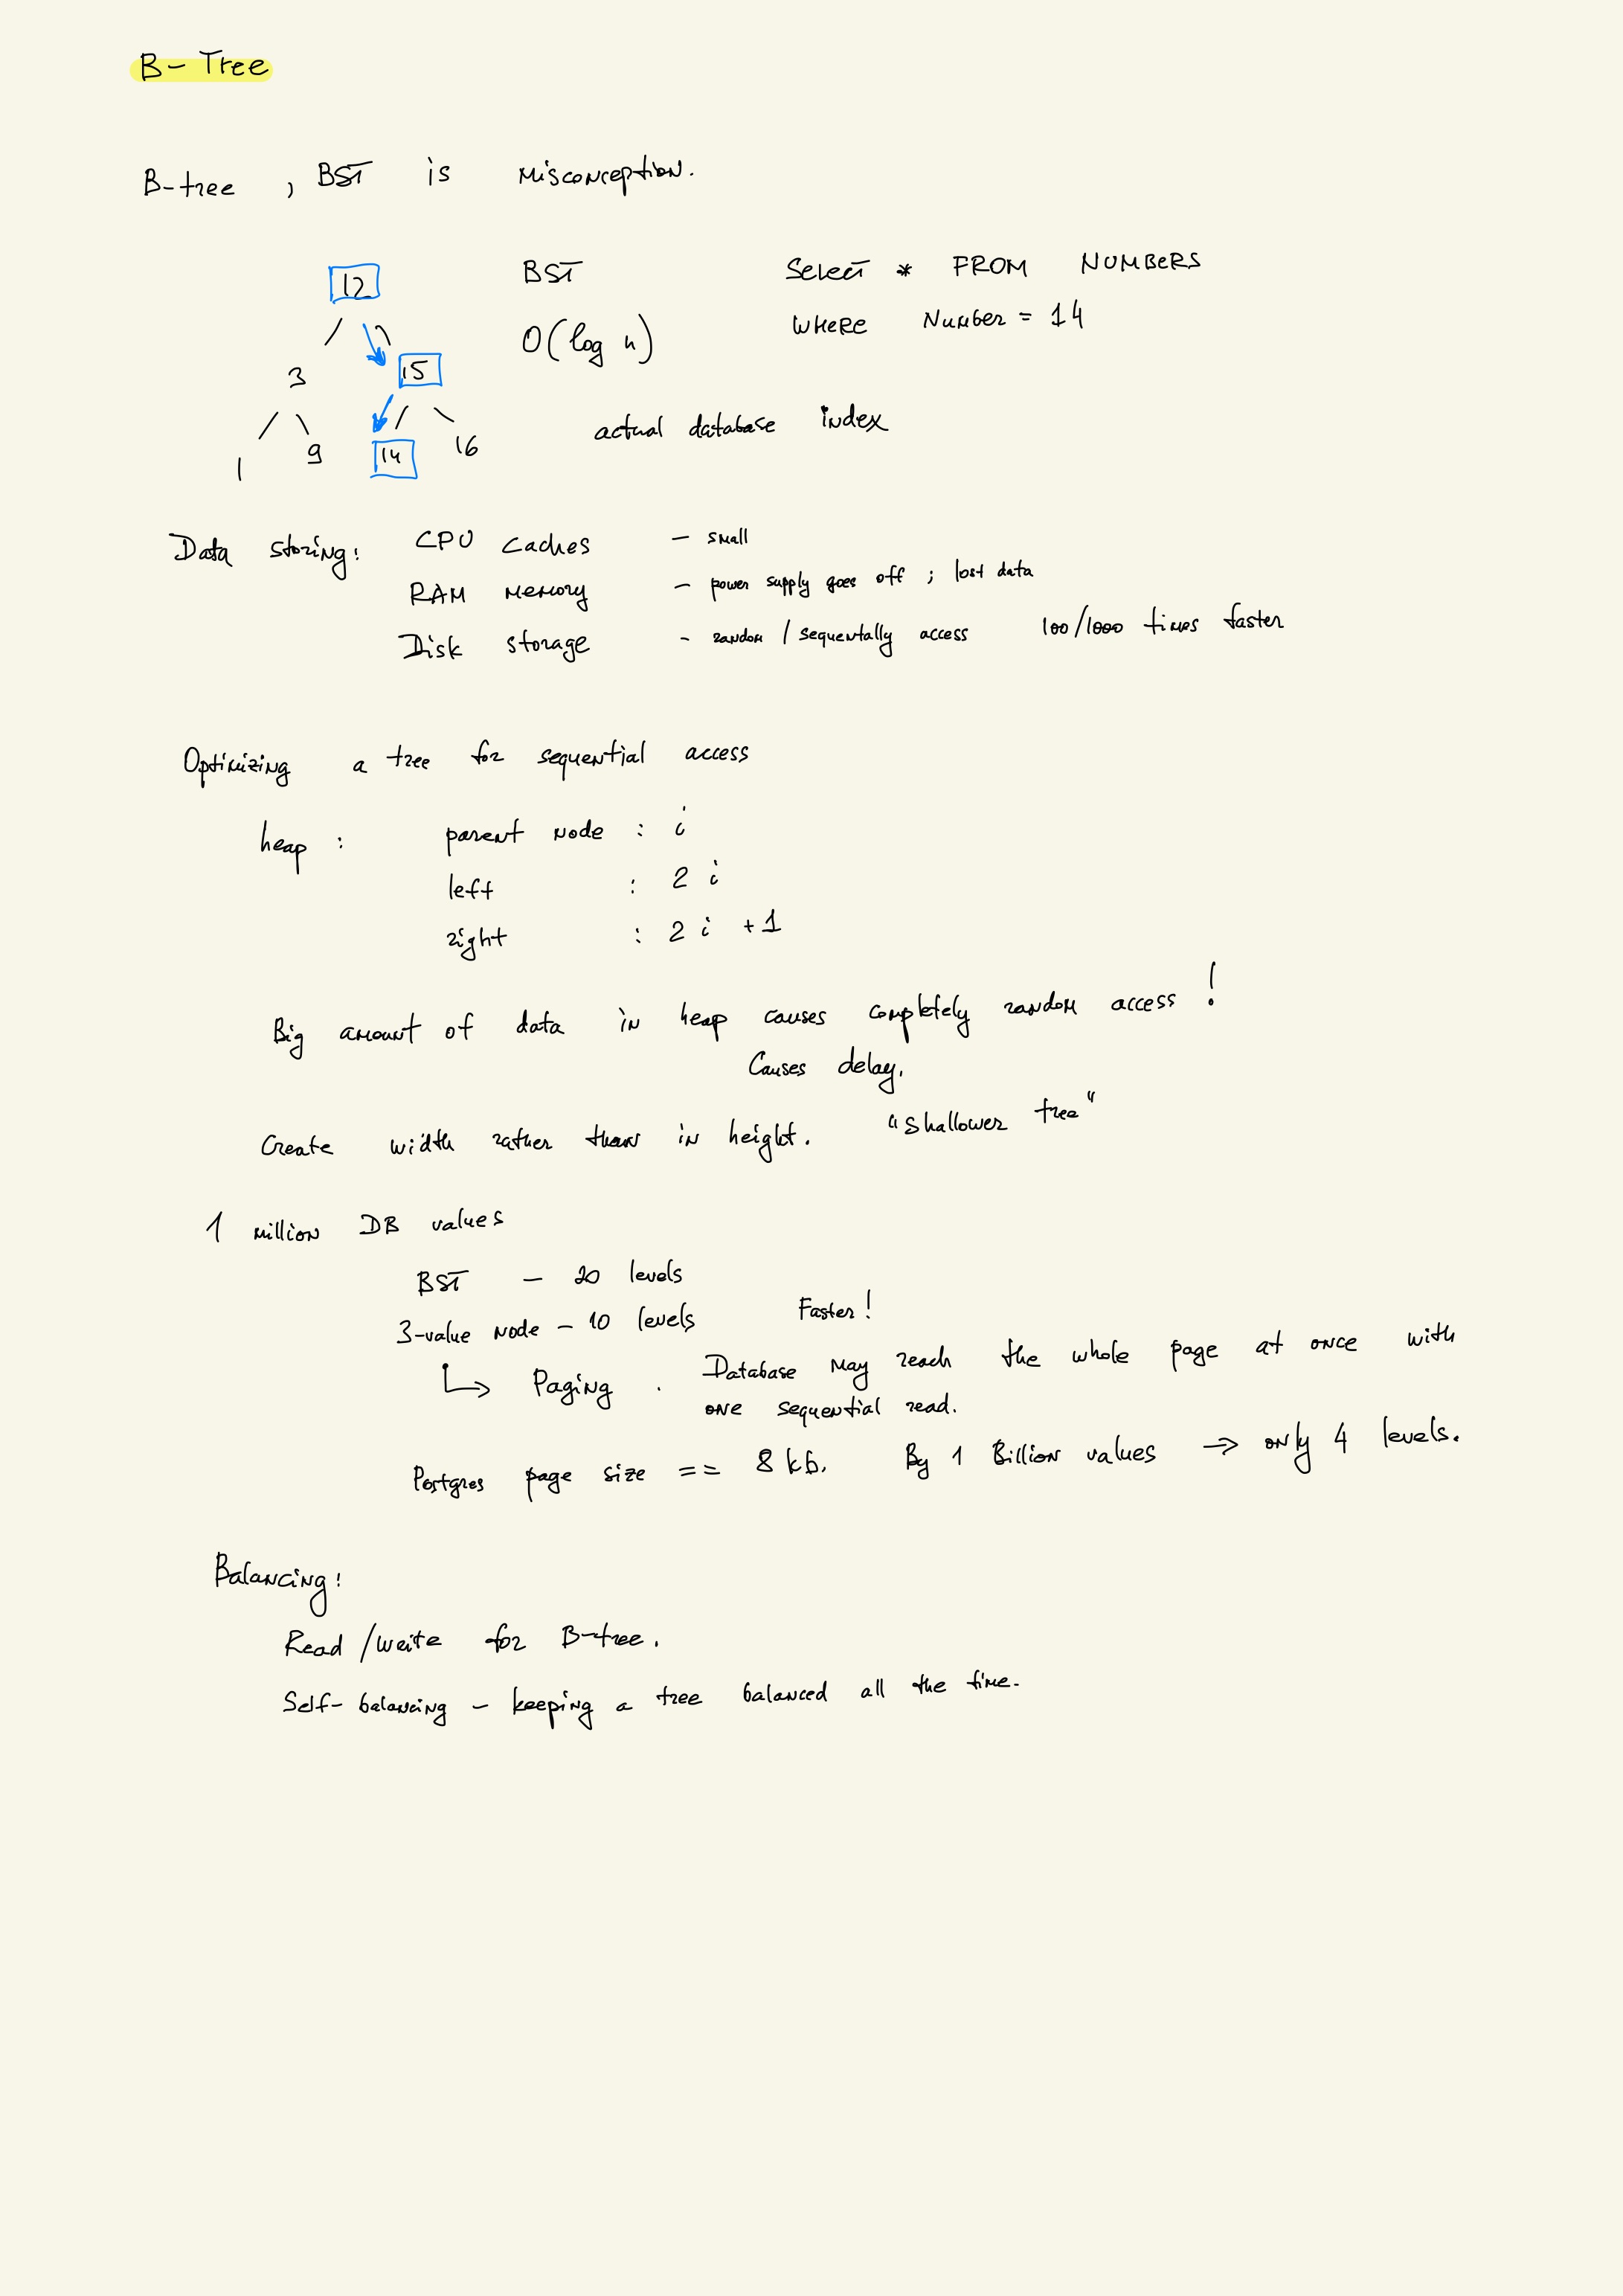 B- Tree
B-tree , BST is misconception.
12 BST Select * FROM NUMBERS
O(log n) WHERE Number = 14
3 15
actual database index
1 9 14 16
Data storing: CPU Caches - small
RAM memory - power supply goes off ; lost data
Disk storage - random / sequentally access 100/1000 times faster
Optimizing a tree for sequential access
heap : parent node : i
left : 2 i
right : 2 i +1
Big amount of data in heap causes completely random access !
Causes delay.
Create width rather than in height. "shallower tree"
1 million DB values
BST - 20 levels
3-value node - 10 levels Faster!
↳ Paging . Database may reach the whole page at once with
one sequential read.
Postgres page size == 8 kb. By 1 Billion values → only 4 levels.
Balancing:
Read /write for B-tree.
Self-balancing - keeping a tree balanced all the time.